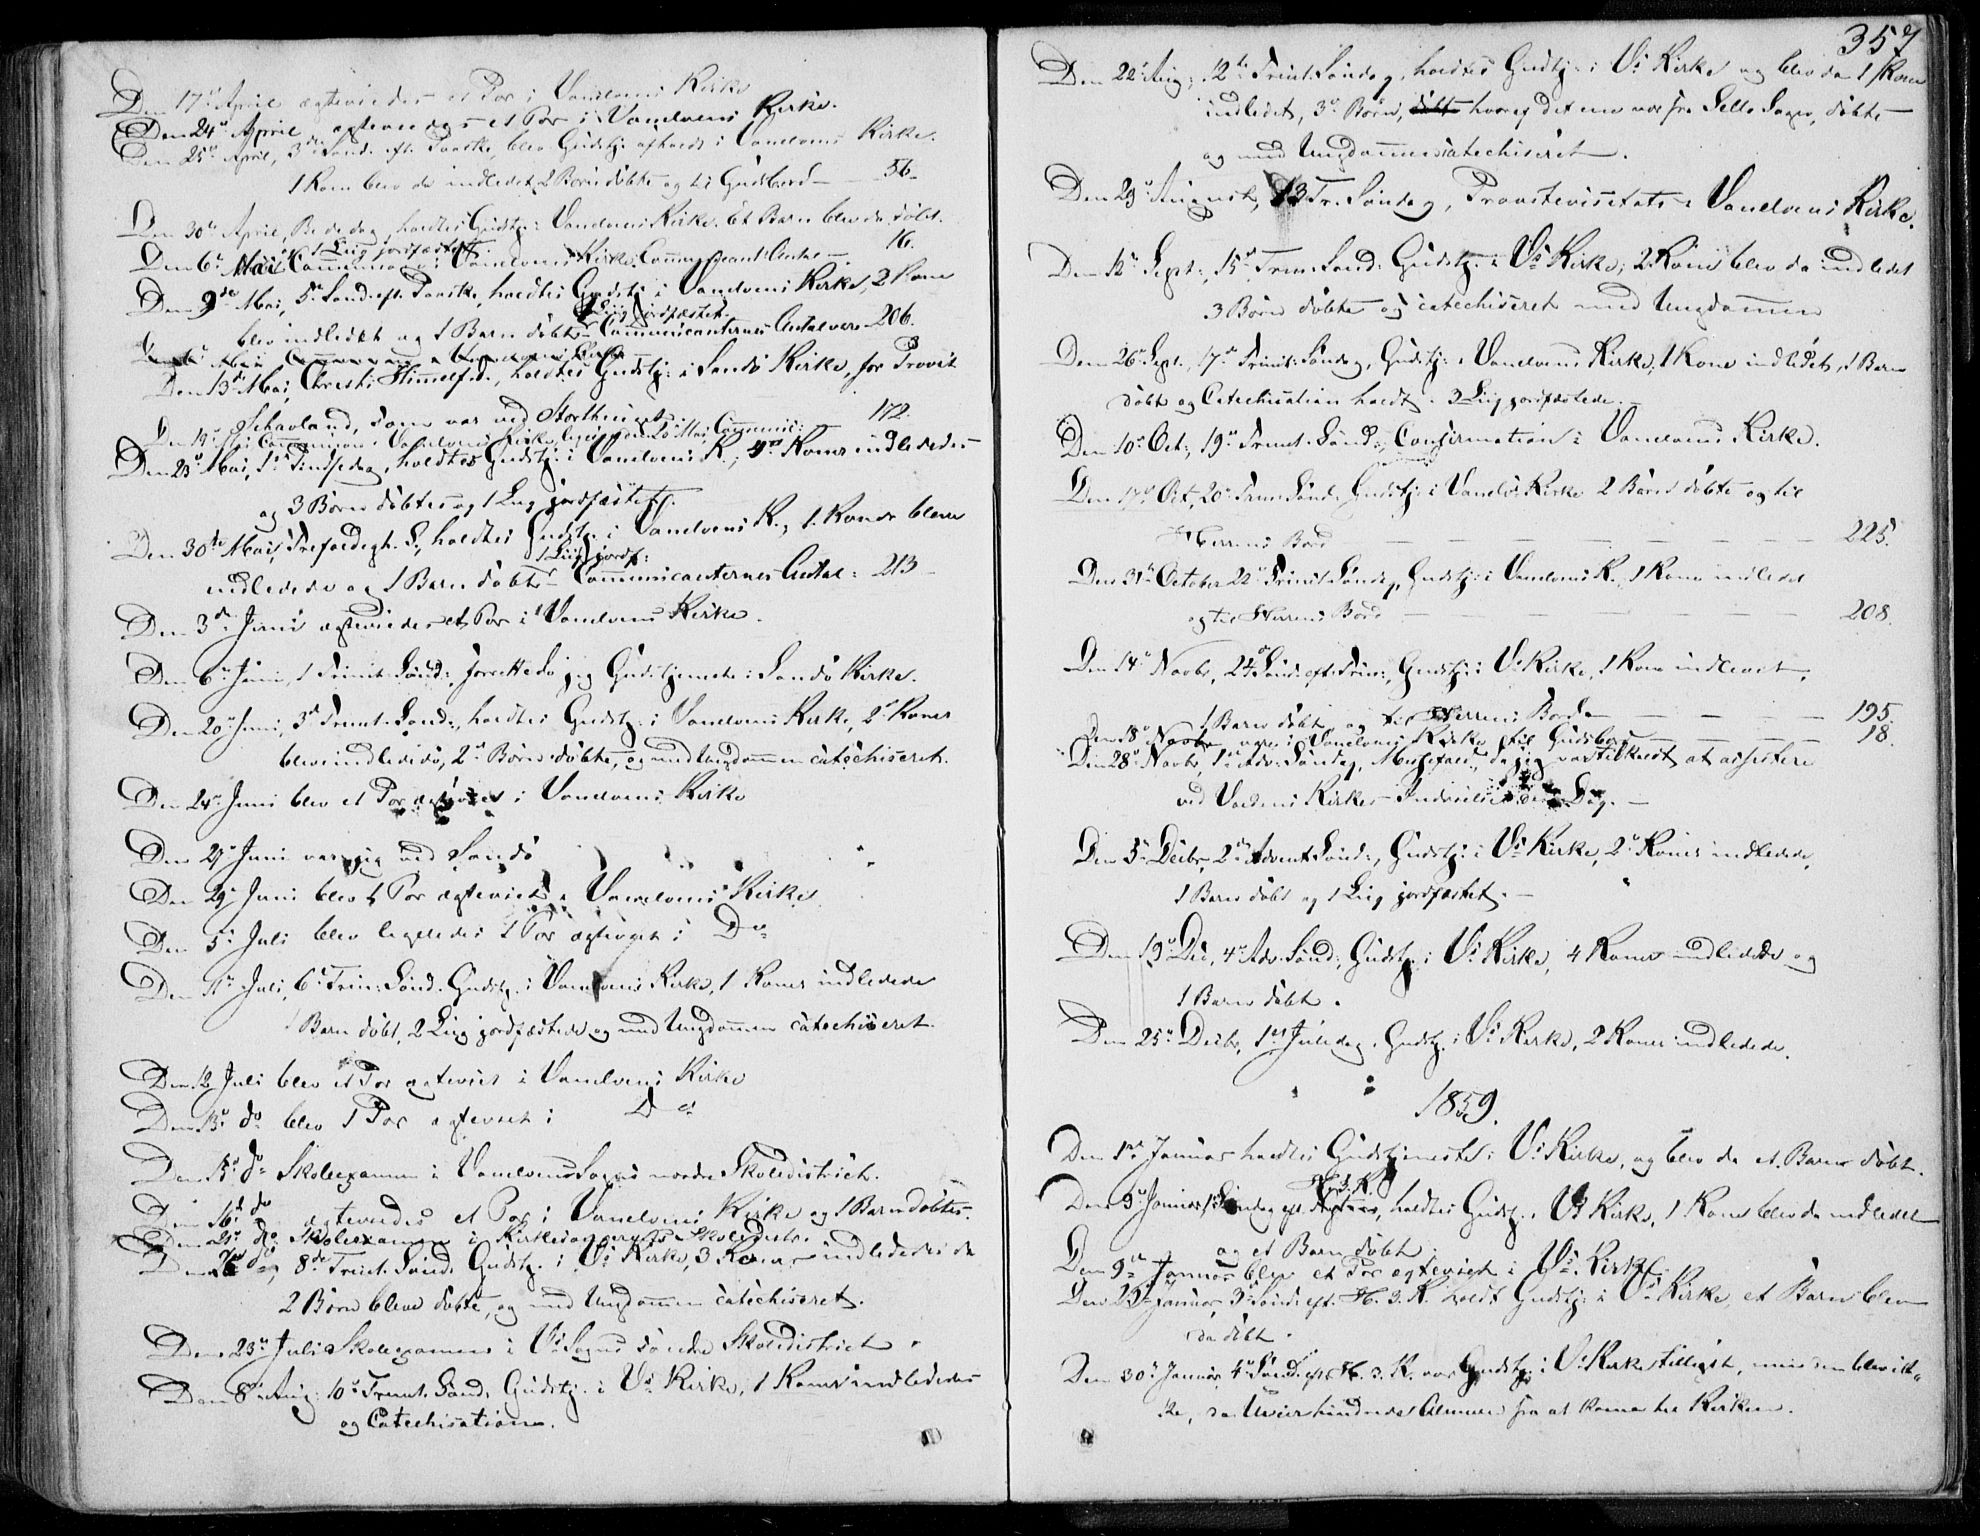 Den 17de April ægteviedes et Par i Vanelvens Kirke
Den 24de April ægteviedes et Par i Vanelvens Kirke.
Den 25de April, 3die Sønd. eft. Paaske, blev Gudstj: afholdt i Vanelvens Kirke.
1 Kone blev da indledet, 2 Børn døbte og til Gudsbord — 56.
Den 30te April, Bededag, holdtes Gudstj: i Vanelvens Kirke. Et Barn blev da døbt.
1 Liig jordfæstet.
Den 6te Mai Communion i Vanelvens Kirke. Communicant: Antal — 16.
Den 9de Mai, 5te Sønd. eft. Paaske, holdtes Gudstj: i Vanelvens Kirke, 2 Kone
1 Liig jordfæstet.
blev indledet og 1 Barn døbt. Communicanternes Antal var 206.
Den 13de Mai, Christi Himmelf. d., holdtes Gudstj: i Sandø Kirke, for Provst
Schavland, som var ved Storthinget
Den 19de Mai Communion i Vanelvens Kirke, den 20 Mai, Communic: 172.
Den 23de Mai, 1ste Pindsedag, holdtes Gudstj: i Vanelvens K., 4 Koner indlededes
og 3 Børn døbtes og 1 Liig jordfæstet.
Den 30te Mai, Trefoldigh. S., holdtes Gudstj. i Vanelvens K., 1. Koner bleve
1 Liig jordf:
indledede og 1 Barn døbt. Communicanternes Antal: 213
Den 3die Juni ægteviedes et Par i Vanelvens Kirke.
Den 6te Juni, 1 Trinit. Sønd: forrettede jeg Gudstjeneste i Sandø Kirke.
Den 20de Juni, 3die Trinit. Sønd:, holdtes Gudstj: i Vanelvens Kirke, 2de Koner
bleve indledede, 2de Børn døbte, og med Ungdommen catechiseret.
Den 24de Juni blev et Par ægteviet i Vanelvens Kirke
Den 27 Juni var jeg ved Sandø
Den 29 Juni blev 1 Par ægteviet i Vanelvens Kirke
Den 5te Juli blev ligeledes 1 Par ægteviet i Do
Den 11te Juli, 6te Trin: Sønd. Gudstj. i Vanelvens Kirke, 1 Koner indledede
1 Barn døbt, 2 Liig jordfæstede og med Ungdommen catechiseret.
Den 12 Juli blev et Par ægteviet i Vanelvens Kirke
Den 13de do blev 1 Par ægteviet i Do
Den 15de do Skoleexamen i Vanelvens Sogns nordre Skoledistrict.
Den 16de do ægteviedes et Par i Vanelvens Kirke og 1 Barn døbtes.
Den 21de do Skoleexamen i Kirkesognets Skoledistr.
Den do, 8de Trinit. Sønd: Gudstj. i Vs Kirke, 3 Koner indlededes da
2 Børn bleve døbte, og med Ungdommen catechiseret.
Den 23de Juli Skoleexamen i Vs Sogns søndre Skoledistrict
Den 8de Aug: 10de Trinit. Sønd: Gudstj. i Vs Kirke, 1 Kone indlededes
og Catechisation.
357
Den 22de Aug; 12te Trinit. Søndag, holdtes Gudstj: i Vs Kirke og blev da 1 Kone
indledet, 3de Børn, hvoraf det ene var fra Selle Sogn, døbte
og med Ungdommen catechiseret.
Den 29de August, 13 Tr. Søndag, Proustevisitats i Vanelvens Kirke.
Den 12te Sept:, 15de Trin: Sønd: Gudstj: i Vs Kirke; 2 Koner blev da indledet
3 Børn døbte og catechiseret med Ungdommen
Den 26de Sept., 17de Trinit: Søndag, Gudstj: i Vanelvens Kirke, 1 Kone indledet, 1 Barn
døbt og Catechisation holdt. 3 Liig jordfæstede.
Den 10de Oct:, 19de Trinit. Sønd:, Confirmation i Vanelvens Kirke.
Den 17de Oct, 20de Trin: Sønd: Gudstj: i Vanelvs Kirke 2 Børn døbte og til
Herrens Bord — 225.
Den 31te October 22de Trinit. Søndag, Gudstj: i Vanelvens K., 1 Kone indledet
og til Herrens Bord — 208.
Den 14de Novbr, 24de Sønd: eft. Trin:, Gudstj: i Vs Kirke, 1 Kone indledet,
1 Barn døbt og til Herrens Bord — 195.
Den 18de Novbr var i Vanelvens Kirke til Gudsbord — 18.
Den 28de Novbr, 1ste Adv. Søndag, Messefald, da jeg var tilkaldt at assistere
ved Voldens Kirkes Indvielse den Dag. —
Den 5te Decbr, 2den Advent Sønd:, Gudstj: i Vs Kirke, 2de Koner indledede,
1 Barn døbt og 1 Liig jordfæstet. —
Den 19de Dec, 4de Adv. Sønd:, Gudstj. i Vs Kirke, 4 Koner indledede og
1 Barn døbt.
Den 25de Decbr, 1ste Juledag, Gudstj. i Vs Kirke, 2 Koner indledede.
1859.
Den 1ste Januar holdtes Gudstjeneste i Vs Kirke, og blev da et Barn døbt.
H. 3. K.
Den 9de Januar, 1 Søndag eft. , holdtes Gudstj. i Vs Kirke, 1 Kone blev da indledet
og et Barn døbt.
Den 9de Januar blev et Par ægteviet i Vs. Kirke.
Den 23de Januar, 3die Sønd: eft. H. 3. K. holdt Gudstj: i Vs Kirke, et Barn blev
da døbt.
Den 30te Januar, 4de Sønd: eft H. 3. K. var Gudstj: i Vs Kirke tillyst, men den blev ik-
ke, da Uveir hindrede Almuen fra at komme til Kirken.